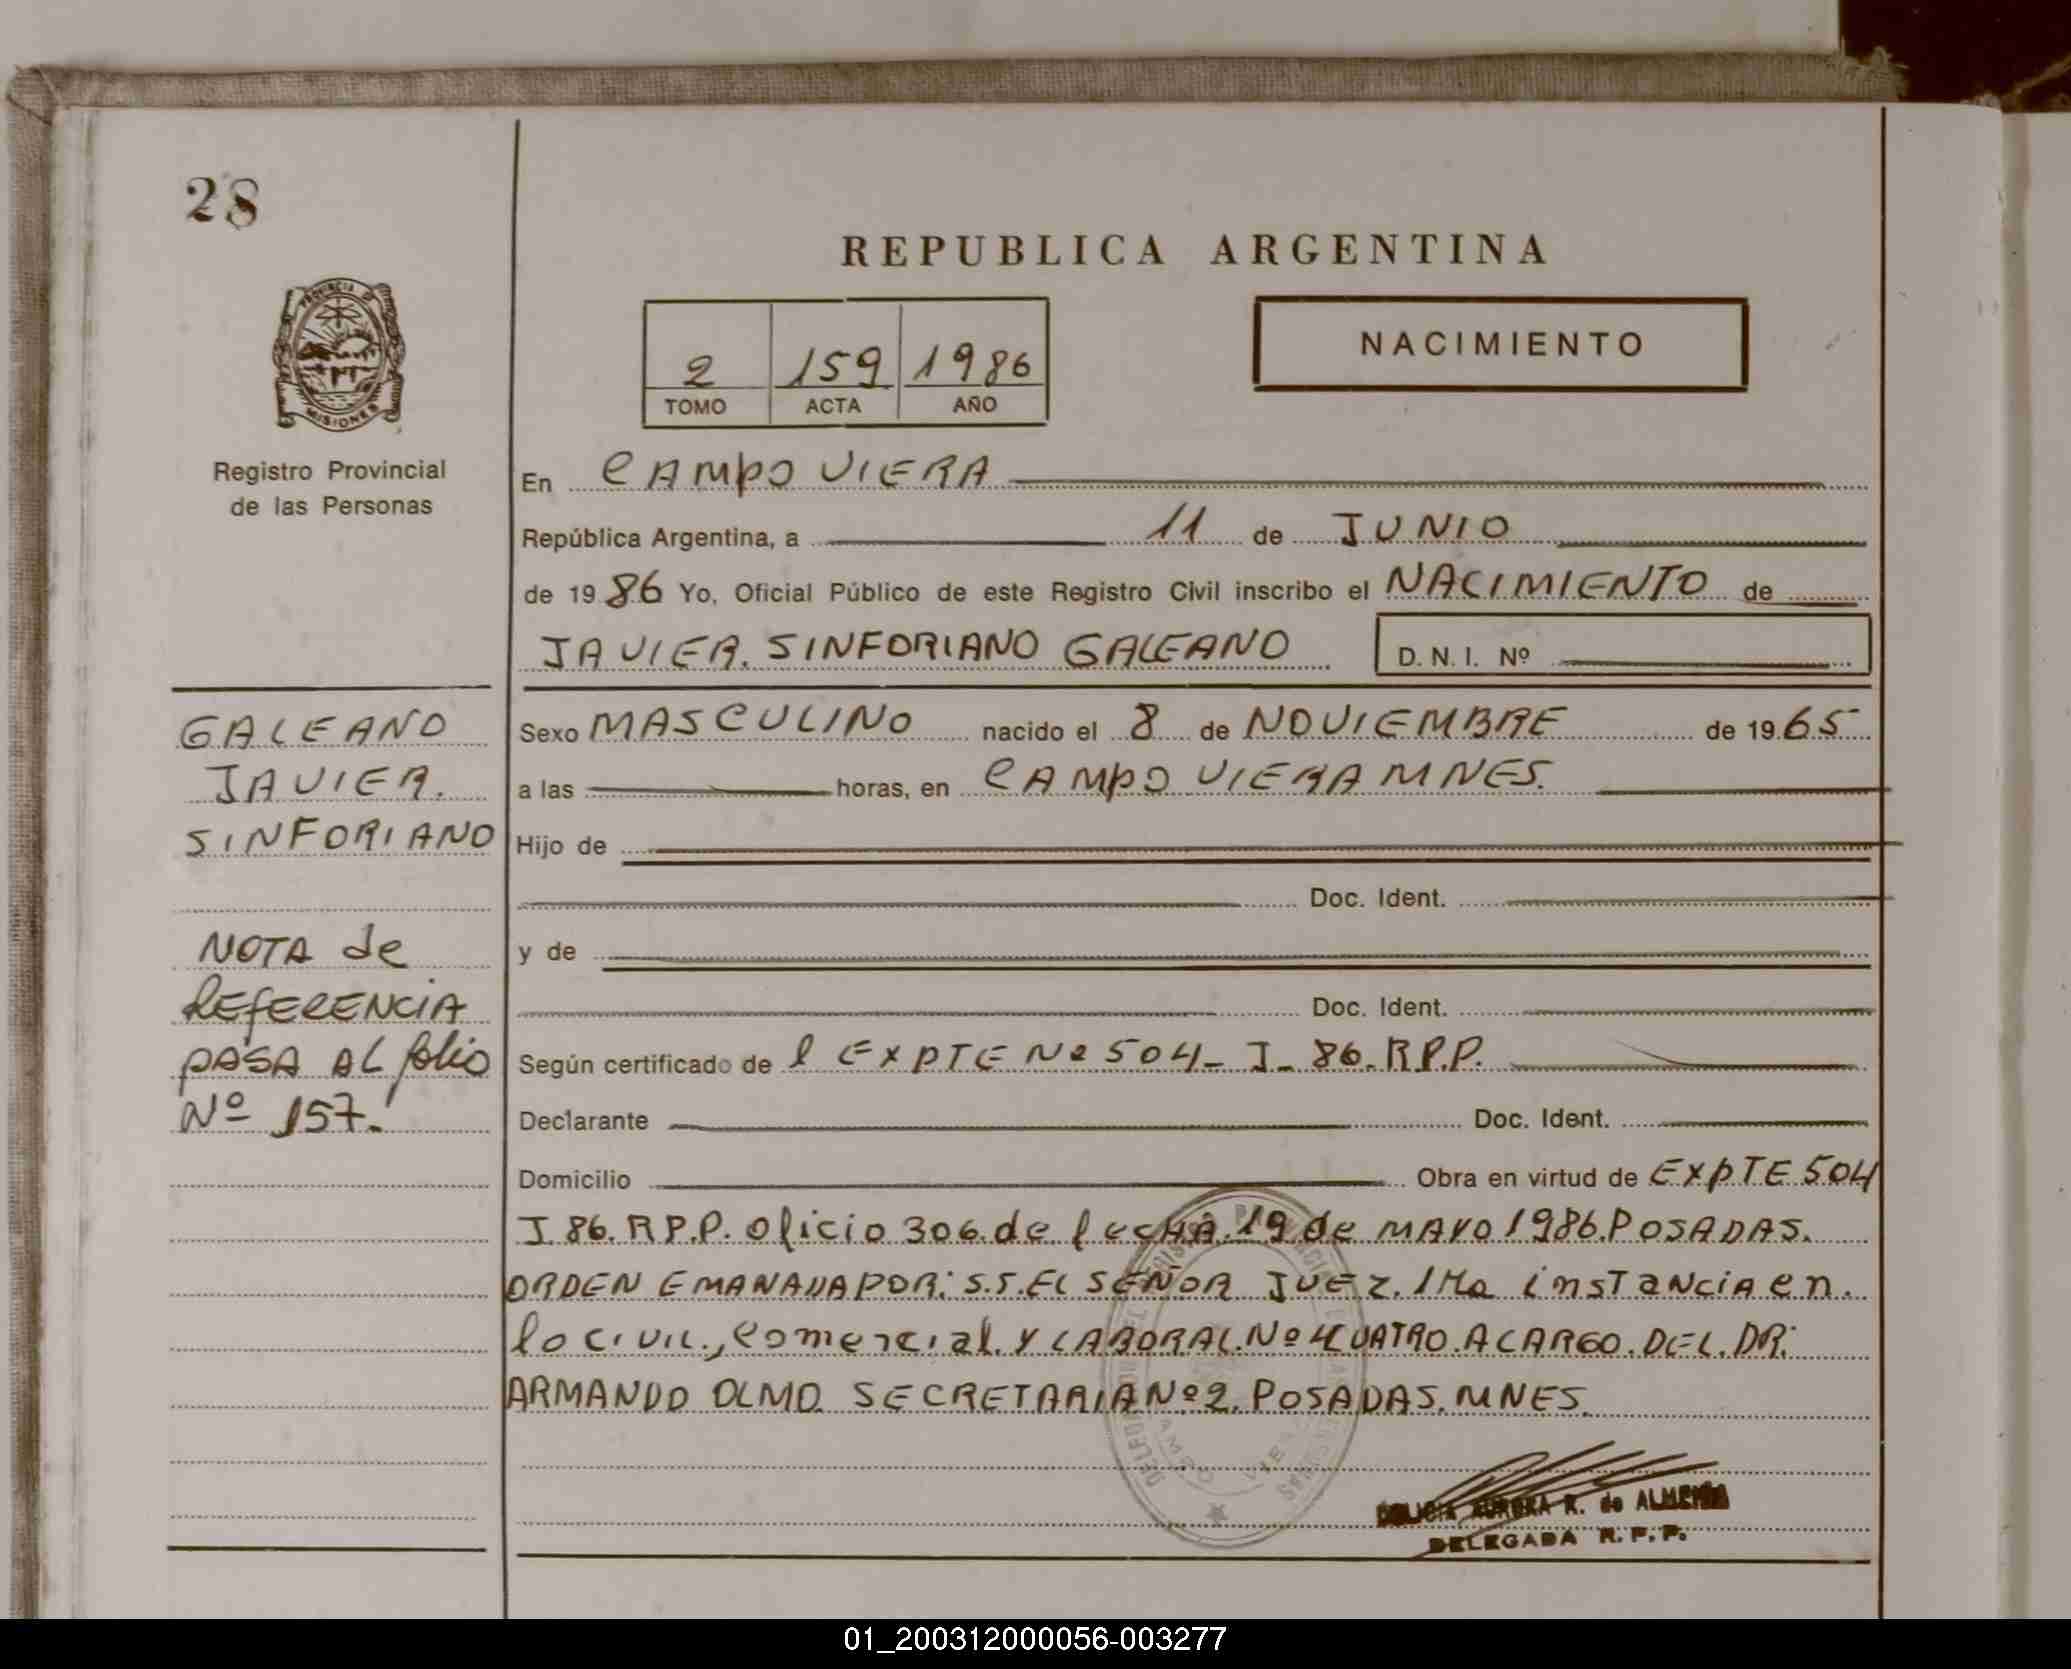 28
REPUBLICA ARGENTINA
PROVINCIA DE
MISIONES
Registro Provincial
de las Personas
2 159 1986
TOMO ACTA AÑO
NACIMIENTO
En CAMPO VIERA
República Argentina, a 11 de JUNIO
de 1986 Yo, Oficial Público de este Registro Civil inscribo el NACIMIENTO de
JAVIER. SINFORIANO GALEANO D. N. I. Nº
GALEANO
JAVIER.
SINFORIANO
NOTA de
REFERENCIA
PASA AL folio
Nº 157.
Sexo MASCULINO nacido el 8 de NOVIEMBRE de 1965
a las horas, en CAMPO VIERA MNES.
Hijo de
Doc. Ident.
y de
Doc. Ident.
Según certificado de l EXPTE Nº 504_ J_ 86. R.P.P.
Declarante Doc. Ident.
Domicilio Obra en virtud de EXPTE 504
J. 86. R.P.P. oficio 306. de fecHA. 19 de MAYO 1986. POSADAS.
ORDEN EMANADA POR: S.S. EL SEÑOR JUEZ. 1Ma insTaNciA en.
lo CIVIL., Comercial. Y LABORAL. Nº 4 CUATRO. A CARGO. DEL. DR:
ARMANDO OLMO. SECRETARIA Nº 2. POSADAS. MNES.
CAMPO VIERA
AURORA R. de ALMEIDA
DELEGADA R. P. P.
01_200312000056-003277